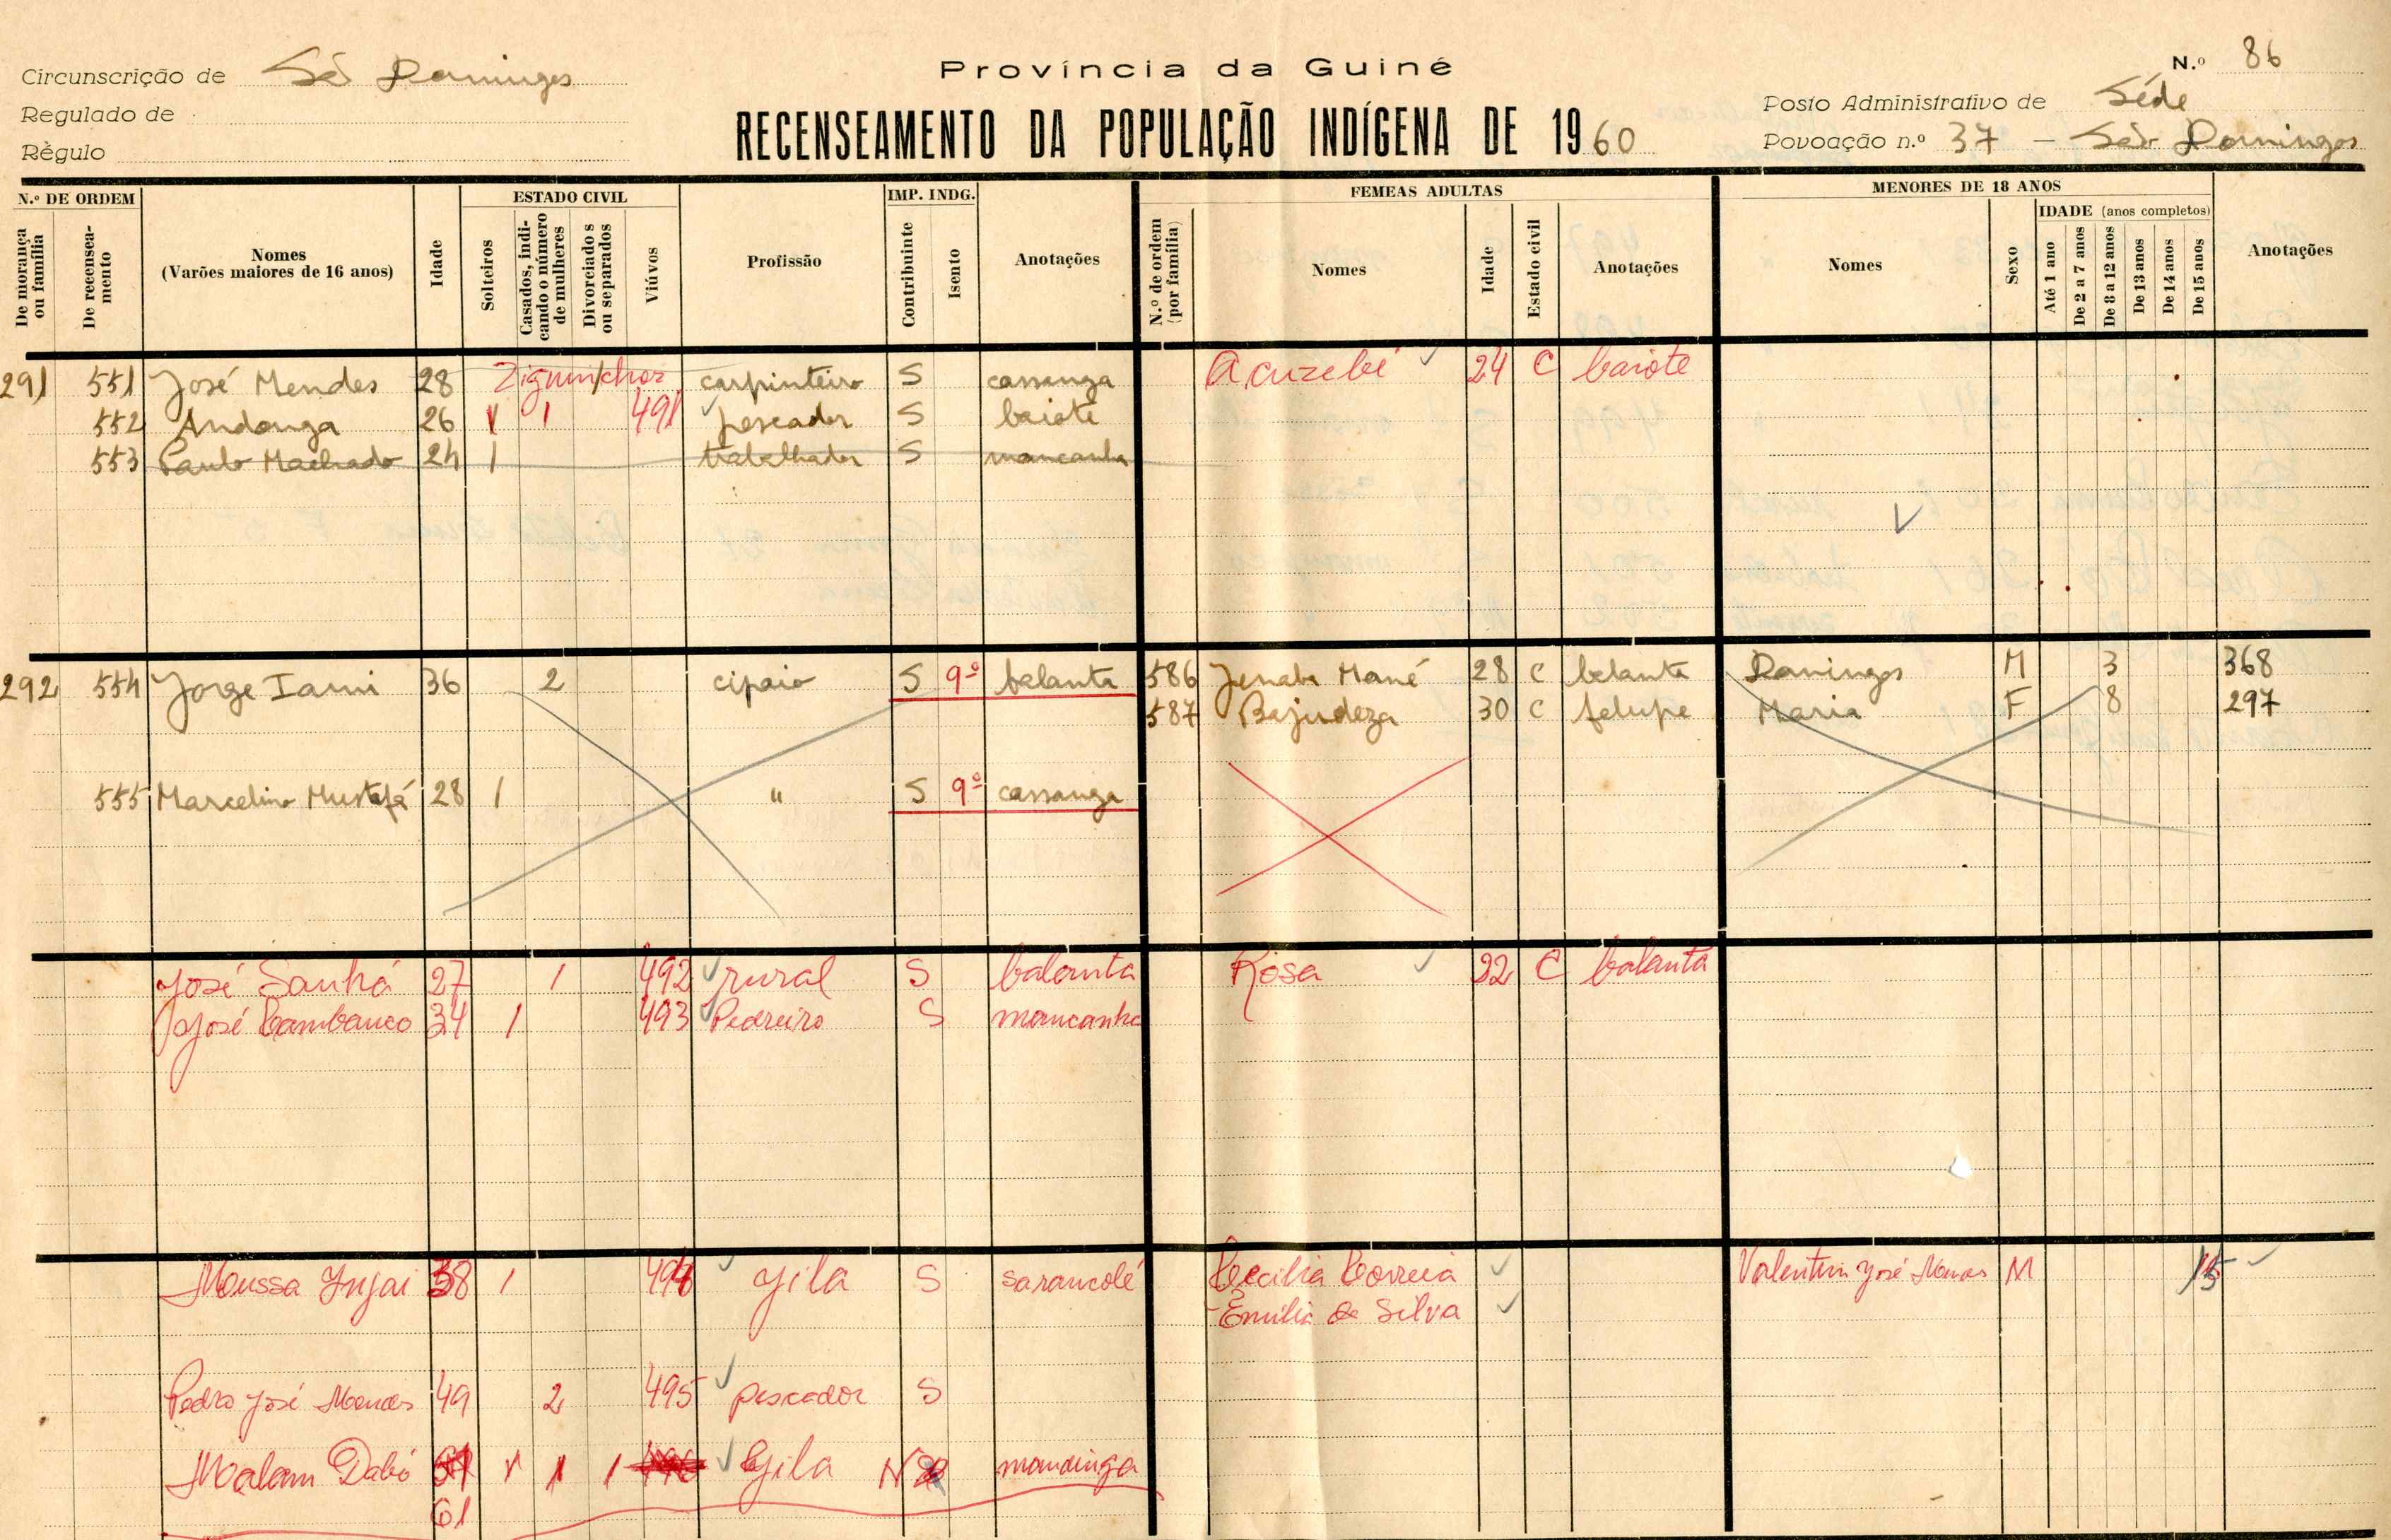 Província da Guiné
N.º 86
Circunscrição de São Domingos
Regulado de
Règulo
RECENSEAMENTO DA POPULAÇÃO INDÍGENA DE 1960
Posto Administrativo de Séde
Povoação n.º 37 — São Domingos
N.º DE ORDEM
De morança ou família
De recenseamento
Nomes
(Varões maiores de 16 anos)
Idade
ESTADO CIVIL
Solteiros
Casados, indicando o número de mulheres
Divorciados ou separados
Viúvos
Profissão
IMP. INDG.
Contribuinte
Isento
Anotações
FEMEAS ADULTAS
N.º de ordem (por família)
Nomes
Idade
Estado civil
Anotações
MENORES DE 18 ANOS
Nomes
Sexo
IDADE (anos completos)
Até 1 ano
De 2 a 7 anos
De 8 a 12 anos
De 13 anos
De 14 anos
De 15 anos
Anotações
291 551 José Mendes 28 Ziguinchor carpinteiro S cassanga Acuzebé 24 C baiote
552 Andonga 26 1 1 491 pescador S baiote
553 Paulo Machado 24 1 trabalhador S mancanha
292 554 Jorge Iami 36 2 cipaio S 9º balanta 586 Jenabe Mané 28 C balanta Domingos M 3 368
587 Bajudeza 30 C felupe Maria F 8 297
555 Marcelino Mustafá 28 1 " S 9º cassanga
José Sanhá 27 1 492 rural S balanta Rosa 22 C balanta
José Cambanco 34 1 493 Pedreiro S mancanha
Moussa Injai 38 1 494 Gila S saracolé Cecilia Correia Valentim José Mendes M 15
Emilia da Silva
Pedro José Mendes 49 2 495 pescador S
Malam Dabó 1 1 1 Gila N mandinga
61